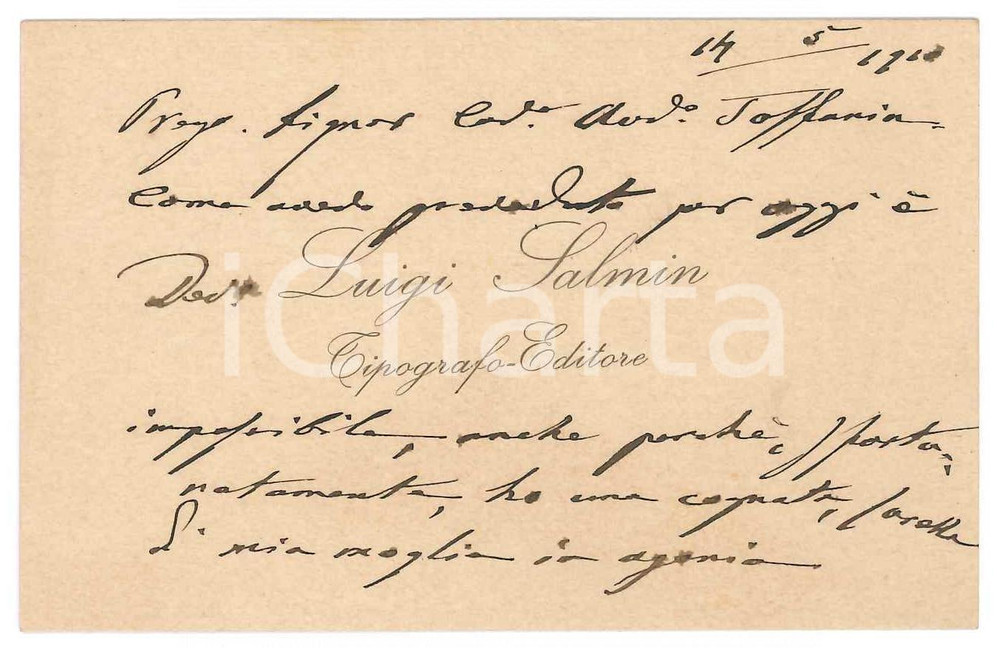 14 5 1910
Preg. Signor Cav. Avv. Toffanin
Come avevo preveduto per oggi è
Dev. Luigi Salmin
Tipografo-Editore
impossibile, anche perchè, sfortu-
natamente, ho una cognata, sorella
di mia moglie in agonia
iCharta